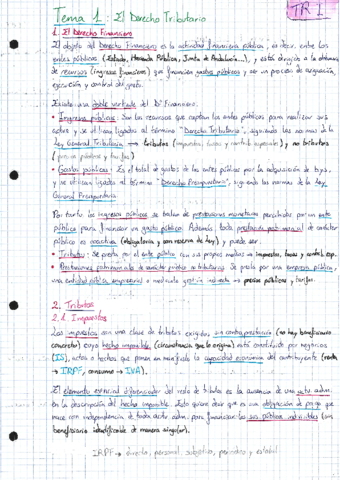 TR 1
Tema 1: El Derecho Tributario
1. El Derecho Financiero
El objeto del Derecho Financiero es la actividad financiera pública, es decir, entre los
entes públicos (Estado, Hacienda Pública, Junta de Andalucía...), y está dirigido a la obtención
de recursos (ingresos financieros) que financian gastos públicos y ser un proceso de asignación,
ejecución y control del gasto.
Existe una doble vertiente del Dº Financiero:
• Ingresos públicos: Son los recursos que captan los entes públicos para realizar sus
y se utilizan ligados al término "Derecho Tributario", siguiendo las normas de la
Ley General Tributaria → tributos (impuestos, tasas y contrib especiales) y no tributos
(precios públicos y tarifas)
• Gastos públicos: Es el total de gastos de los entes públicos por la adquisición de bys.
y se utilizan ligados al término "Derecho Presupuestario", siguiendo las normas de la Ley
General Presupuestaria
Por tanto los ingresos públicos se tratan de prestaciones monetarias percibidas por un ente
público para financiar un gasto público. Además toda prestación patrimonial de carácter
público es coactiva (obligatoria y con reserva de ley) y puede ser:
• Tributos: Se presta por el ente público con sus propios medios → impuestos, tasas y contrib. esp.
• Prestaciones patrimoniales de carácter público no tributarias: Se presta por una empresa pública,
una entidad pública empresarial o mediante gestión indirecta → precios públicos y tarifas.
2. Tributos
2.1. Impuestos
Los impuestos son una clase de tributos exigidos sin contraprestación (no hay beneficiario
concreto) cuyo hecho imponible (circunstancia que lo origina) está constituido por negocios
(IS), actos o hechos que ponen en manifiesto la capacidad económica del contribuyente (renta
→ IRPF, consumo → IVA).
El elemento esencial diferenciador del resto de tributos es la ausencia de una activ. adm.
en la descripción del hecho imponible. Esto quiere decir que es una obligación de pago que
nace con independencia de toda activ. adm. para financiar los serv. públicos indivisibles (sin
beneficiario identificable de manera singular).
IRPF → directo, personal, subjetivo, periódico y estatal